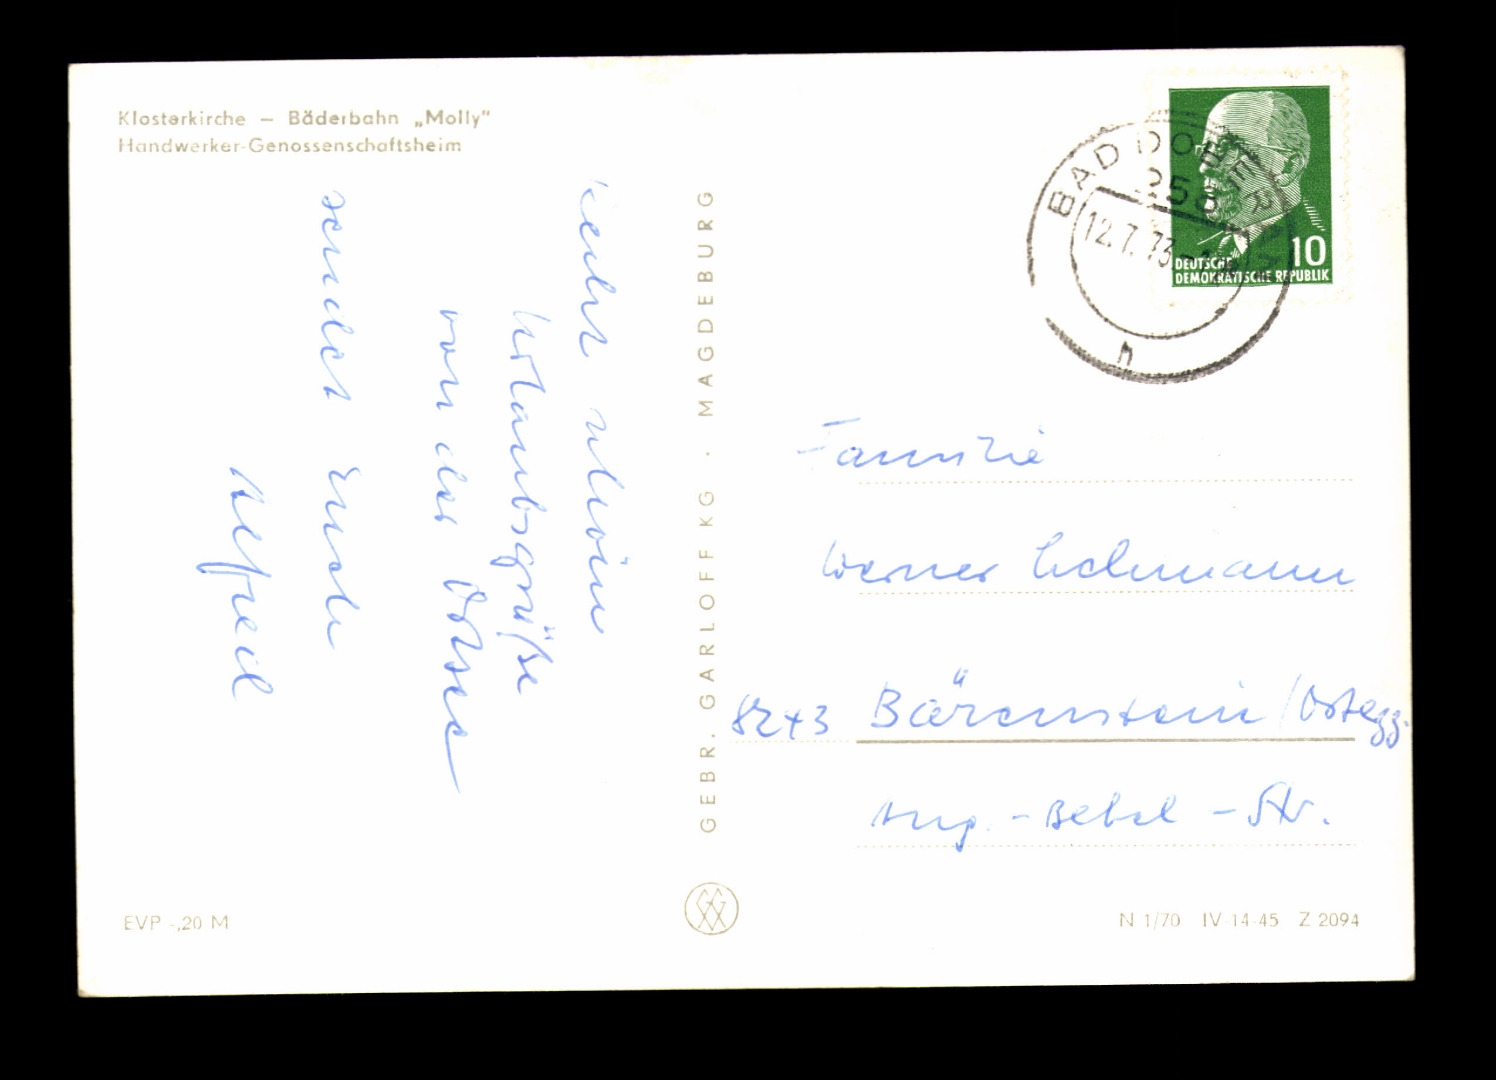 Klosterkirche – Bäderbahn „Molly"
Handwerker-Genossenschaftsheim
Recht schöne
Urlaubsgrüße
von der Ostsee
sendet Euch
Alfred
GEBR. GARLOFF KG · MAGDEBURG
BAD DOBERAN
258
12.7.73
h
10
DEUTSCHE
DEMOKRATISCHE REPUBLIK
Familie
Werner Lehmann
8243 Bärenstein /Osterzg.
Aug. - Bebel - Str.
EVP -,20 M
N 1/70 IV-14-45 Z 2094